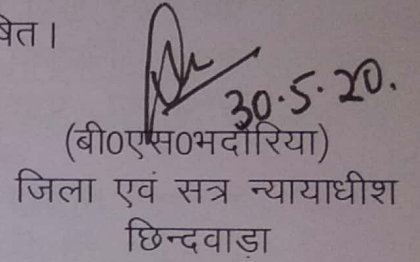 षित।
30.5.20.
(बी0एस0भदौरिया)
जिला एवं सत्र न्यायाधीश
छिन्दवाडा